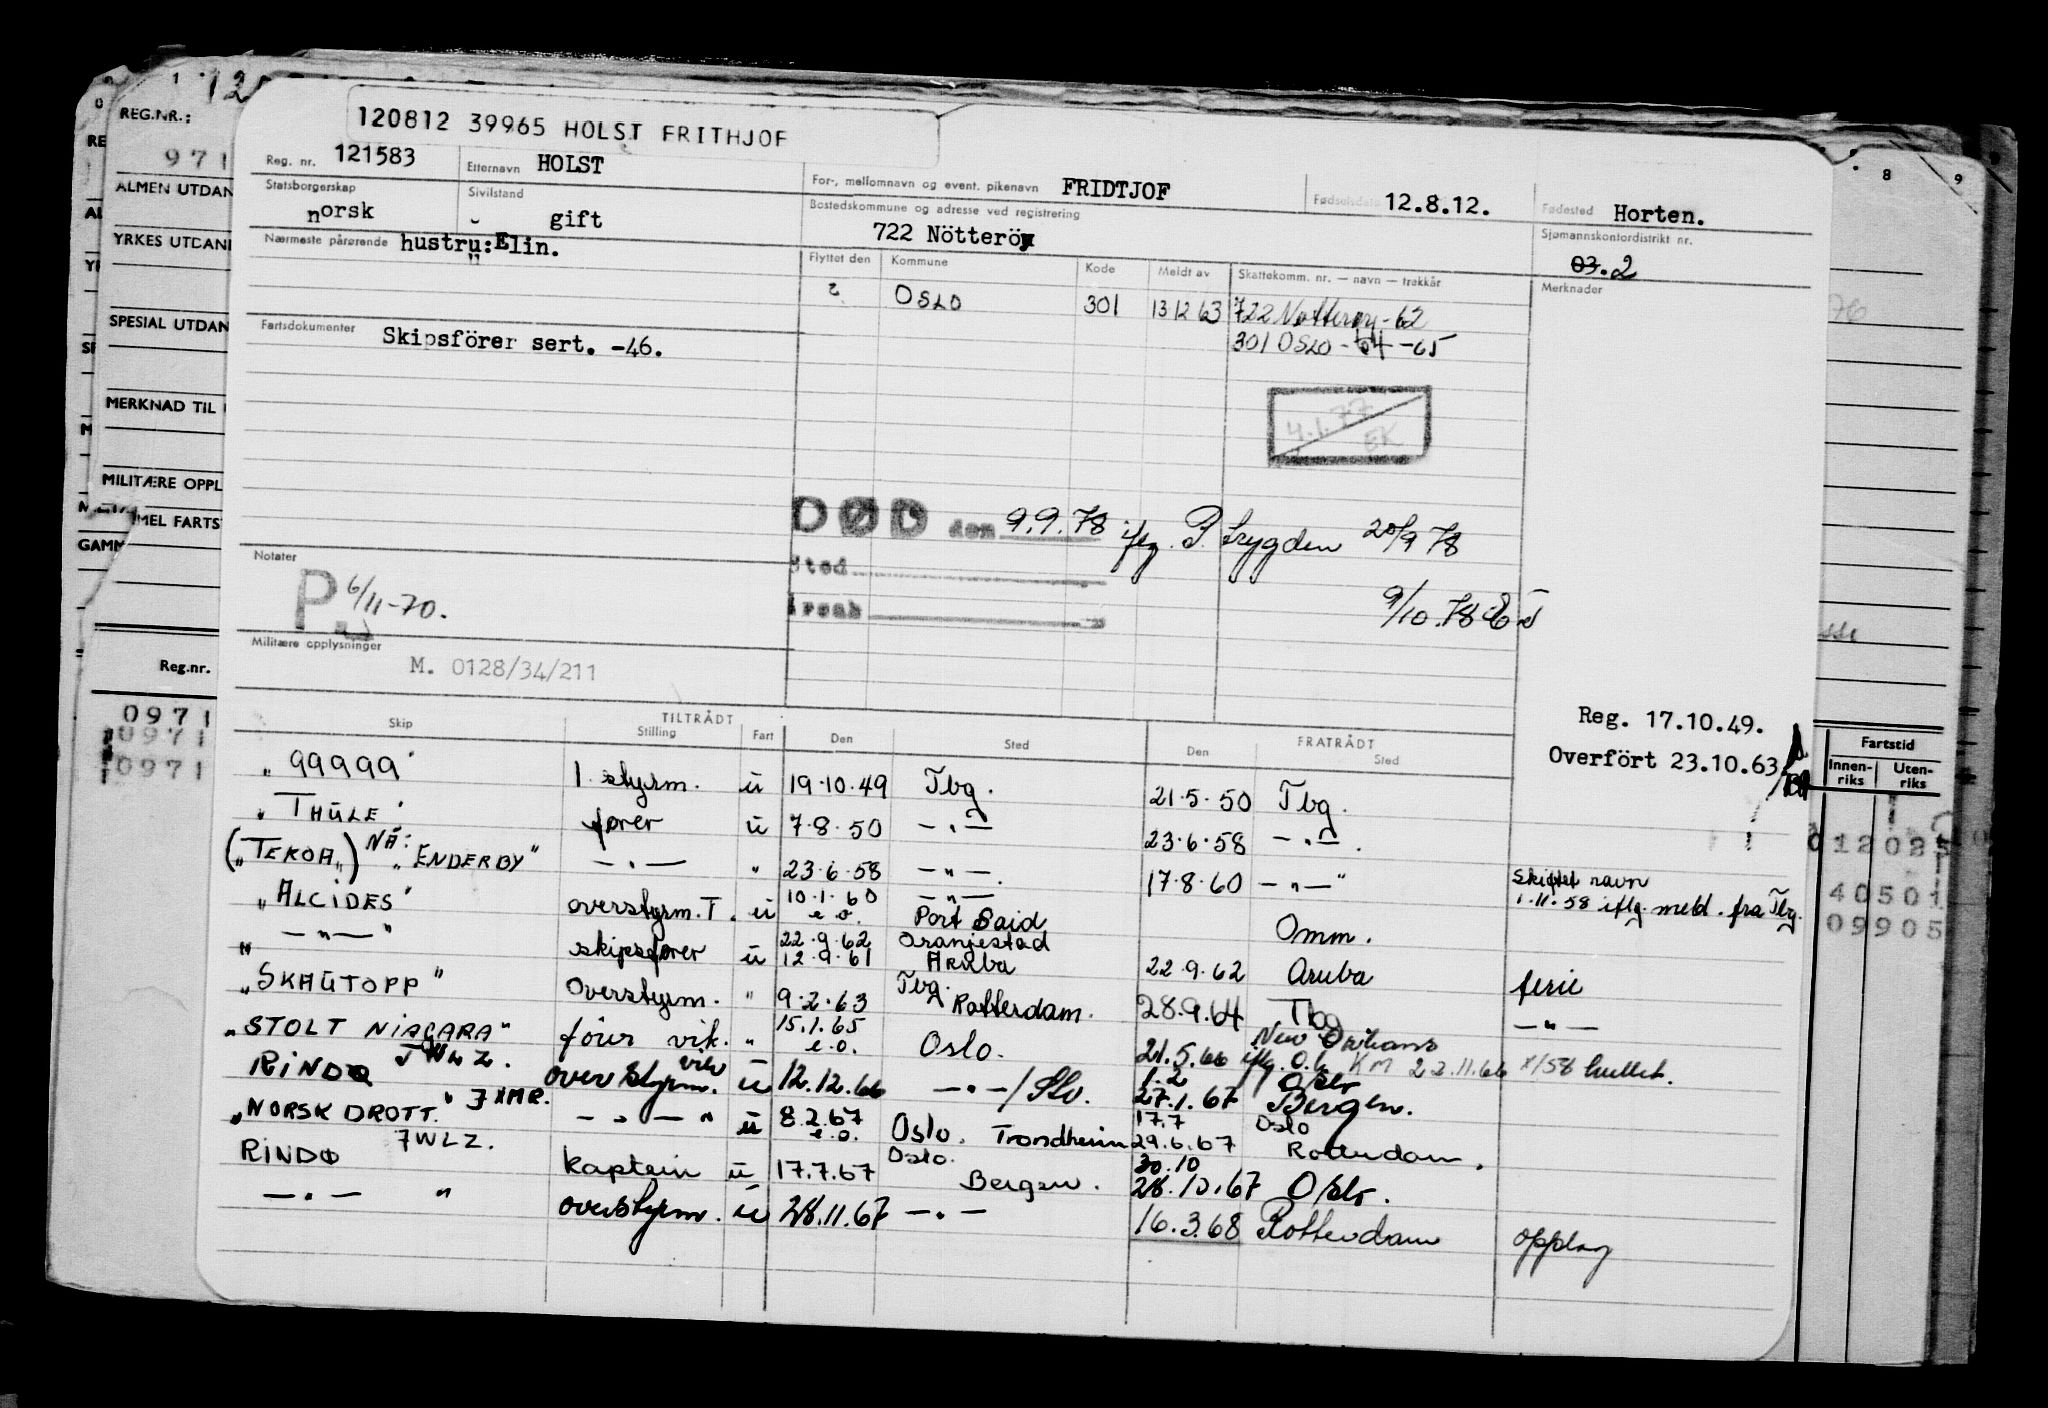 120812 39965 HOLST FRITHJOF
Reg. nr. 121583 Etternavn HOLST For-, mellomnavn og event. pikenavn FRIDTJOF Fødselsdato 12.8.12. Fødested Horten.
Statsborgerskap norsk Sivilstand gift Bostedskommune og adresse ved registrering 722 Nötteröy Sjømannskontordistrikt nr. 03.2
Nærmeste pårørende hustru: Elin.
Flyttet den Kommune Kode Meldt av Skattekomm. nr. — navn — trekkår Merknader
? OSLO 301 13 12 63 722 Nøtterøy-62
301 OSLO - 64 -65
Fartsdokumenter Skipsförer sert. -46.
4.1.77
EK
DØD den 9.9.78 iflg. P. trygden 20/9 78
Sted
Årsak
9/10.78
Notater
P 6/11-70.
Militære opplysninger M. 0128/34/211
Reg. 17.10.49.
Overfört 23.10.63
Skip TILTRÅDT Stilling Fart Den Sted FRATRÅDT Den Sted
"99999" 1. styrm. u 19.10.49 Tbg. 21.5.50 Tbg.
"THULE" fører u 7.8.50 — " — 23.6.58 — " —.
("TEKOA") NÅ: "ENDERBY" — " — " 23.6.58 — " —. 17.8.60 — " — " Skiftet navn
1.11.58 iflg. meld. fra Tbg.
"ALCIDES" overstyrm. T. u 10.1.60 e.o. — " — Port Said Omm.
" — " — " skipsfører u 22.9.62 12.9.61 Oranjestad Aruba 22.9.62 Aruba ferie
"SKAUTOPP" Overstyrm. " 9.2.63 Tbg. Rotterdam. 28.9.64 Tbg — " —
"STOLT NIAGARA" förer vik. " 15.1.65 e.o. Oslo. New Orleans 21.5.66 iflg. O.k. KM 22.11.66 x/58 hullet.
RINDØ JWLZ. overstyrm. vik u 12.12.66 — " — / Slo. 1.2 27.1.67 Oslo Bergen.
"NORSK DROTT." JXMR. — " — " u 8.2.67 e.o. Oslo. Trondheim 17.7 29.6.67 Oslo Rotterdam.
RINDØ JWLZ. kaptein u 17.7.67 Oslo. Bergen. 30.10 28.10.67 Oslo.
— " — " overstyrm. u 28.11.67 — " — 16.3.68 Rotterdam opplag
REG.NR.:
971
ALMEN UTDAN
YRKES UTDAN
SPESIAL UTDAN
MERKNAD TIL
MILITÆRE OPPL
GAMMEL FARTS
Reg.nr.
0971
0971
0971
8 9
Fartstid
Innen-riks Uten-riks
012025
40501
09905